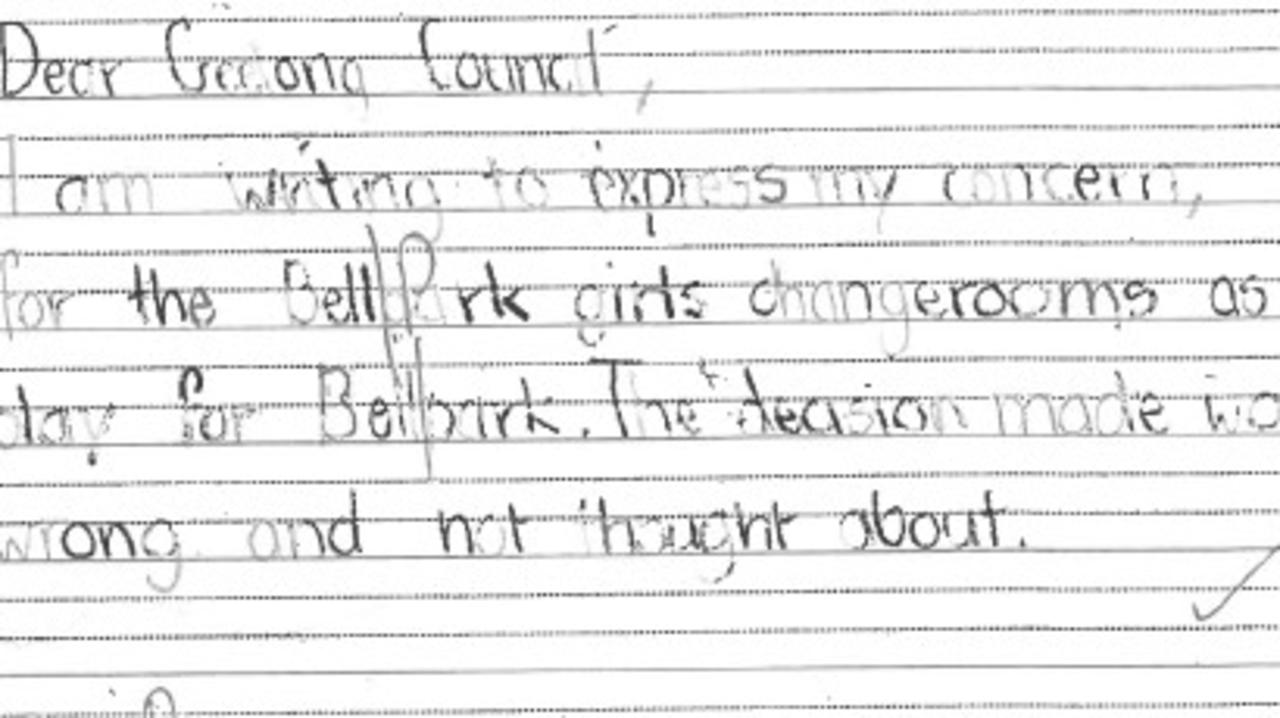 Dear Geelong Council,
I am writing to express my concern,
for the Bell Park girls changerooms as
play for Bellpark. The decision made wa
wrong and not thought about.